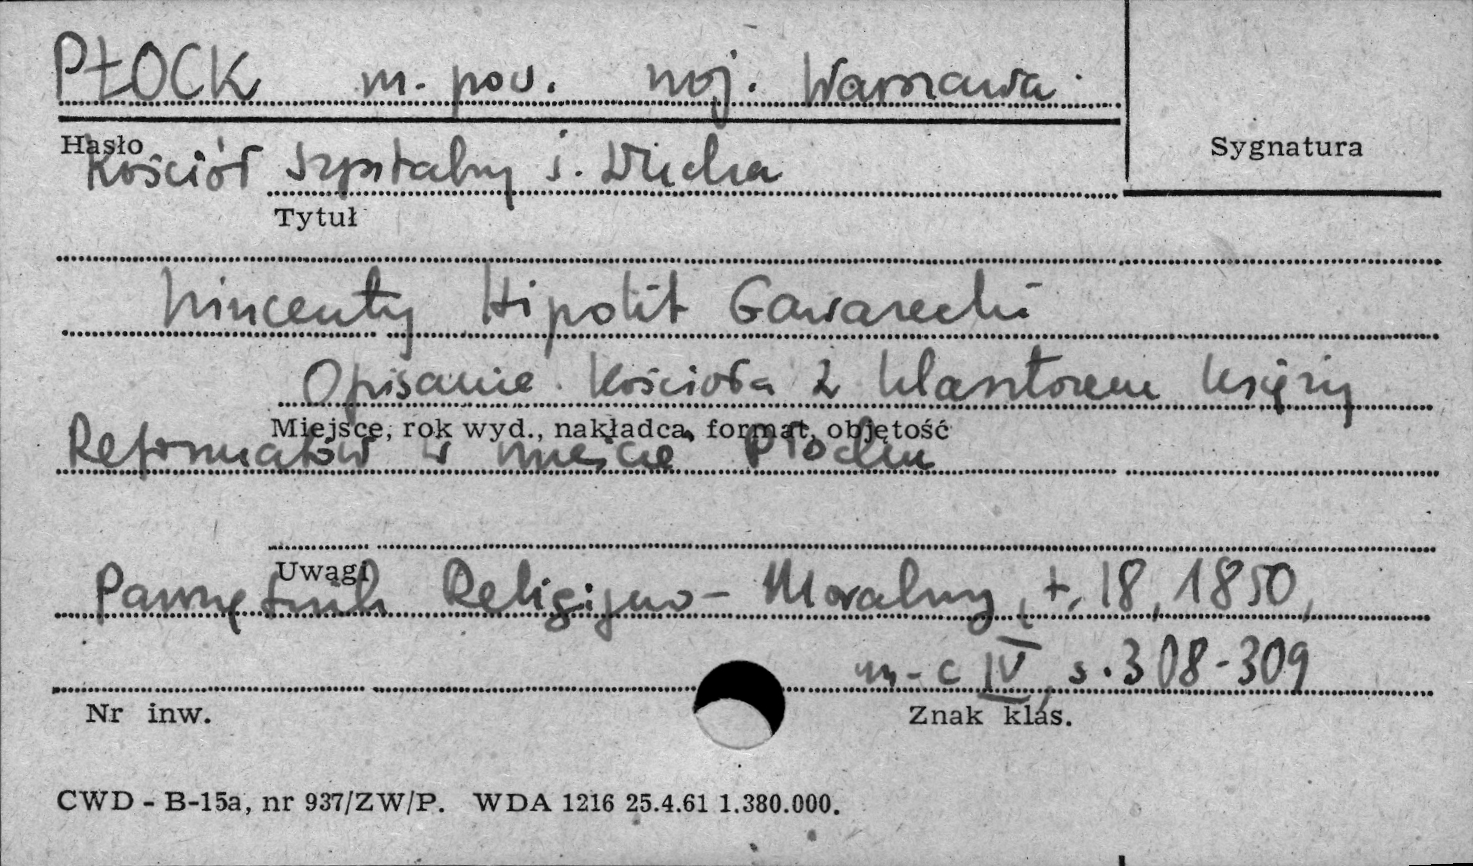 PŁOCK m. pow. woj. Warszawa
Hasło
Sygnatura
Kościół szpitalny ś. Ducha
Tytuł
Wincenty Hipolit Gawarecki
Opisanie kościoła z klasztorem księży
Miejsce, rok wyd., nakładca, format, objętość
Reformatów w mieście Płocku
Uwagi
Pamiętnik Religijno-Moralny, t. 18, 1850,
m-c IV, s. 308-309
Nr inw.
Znak klas.
CWD - B-15a, nr 937/ZW/P. WDA 1216 25.4.61 1.380.000.